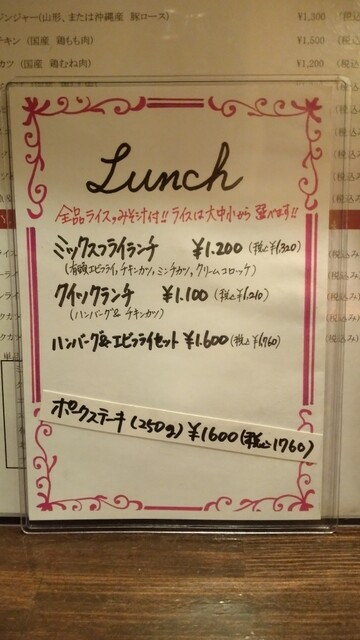 ジンジャー(山形、または沖縄産 豚ロース) ¥1,300 (税込
チキン (国産 鶏もも肉) ¥1,500 (税込
カツ (国産 鶏むね肉) ¥1,200 (税込
Lunch
全品ライス、みそ汁付!! ライスは大中小から選べます!!
ミックスフライランチ ¥1.200 (税込¥1320)
(有頭エビフライ、チキンカツ、ミンチカツ、クリームコロッケ)
クイックランチ ¥1.100 (税込¥1,210)
(ハンバーグ& チキンカツ)
ハンバーグ&エビフライセット ¥1.600 (税込¥1760)
ポークステーキ(250g) ¥1600(税込1760)